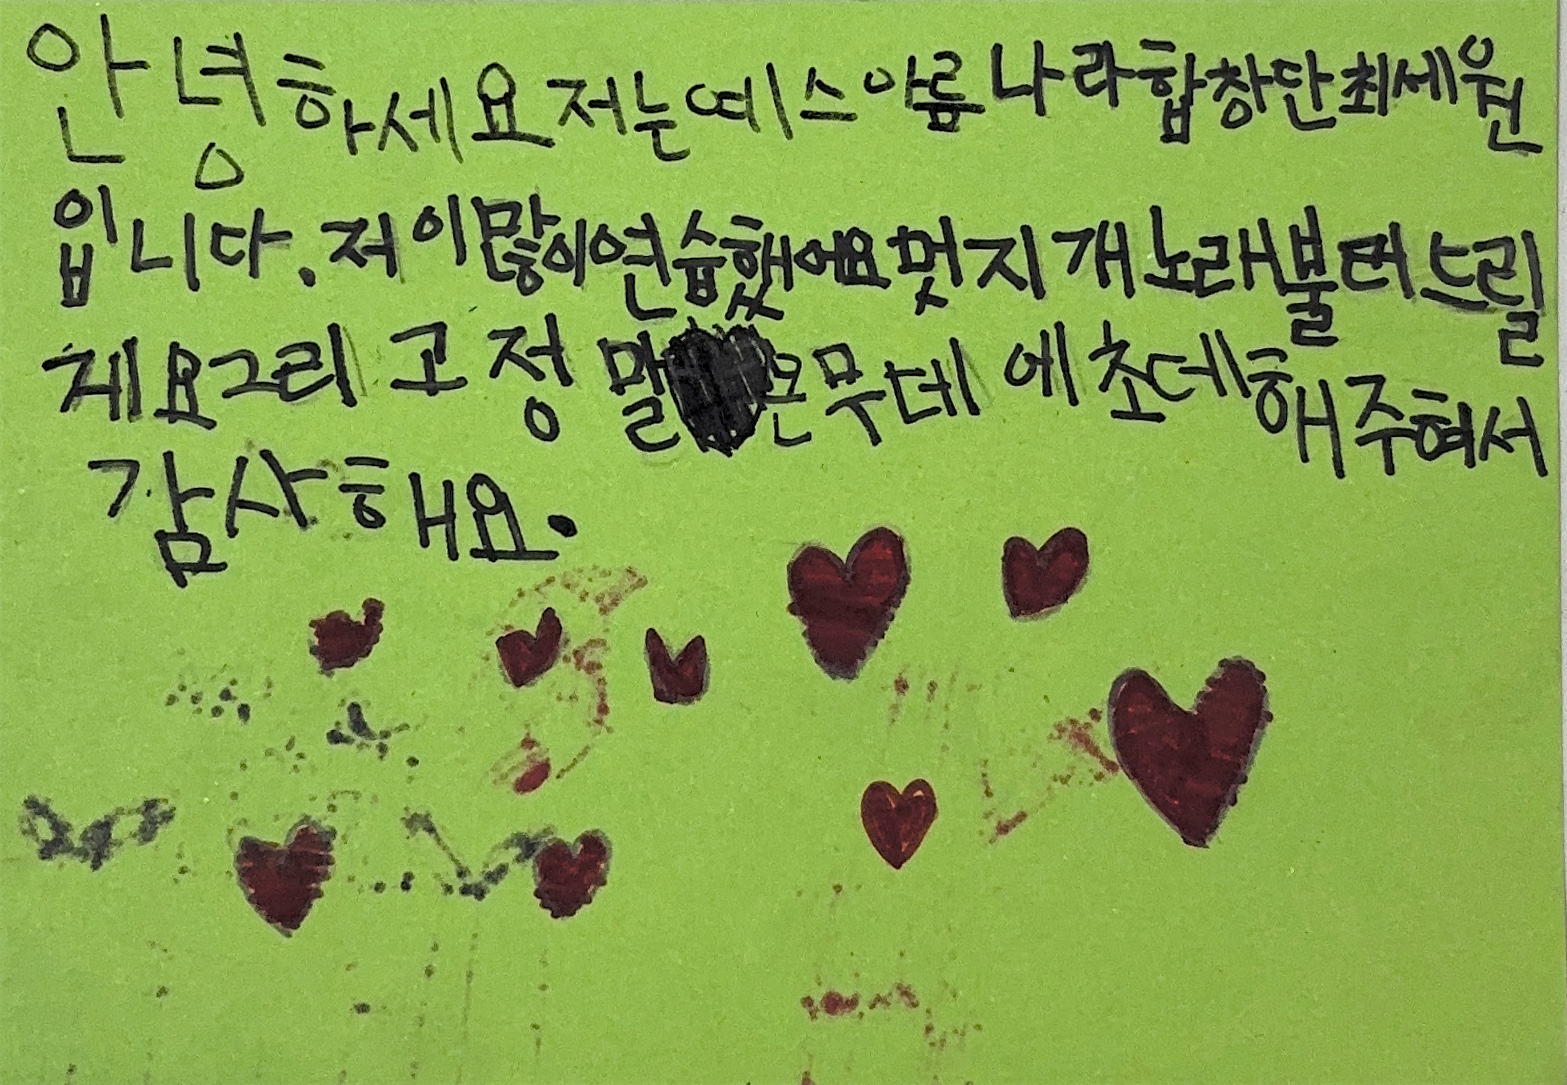 안녕하세요 저는 예스 아름나라합창단 최세원
입니다. 저 이 많이 연습했어요 멋지개 노래 불터 드릴
제요 그리고 정말 온 무데에 초데해 주혀서
감사해요.